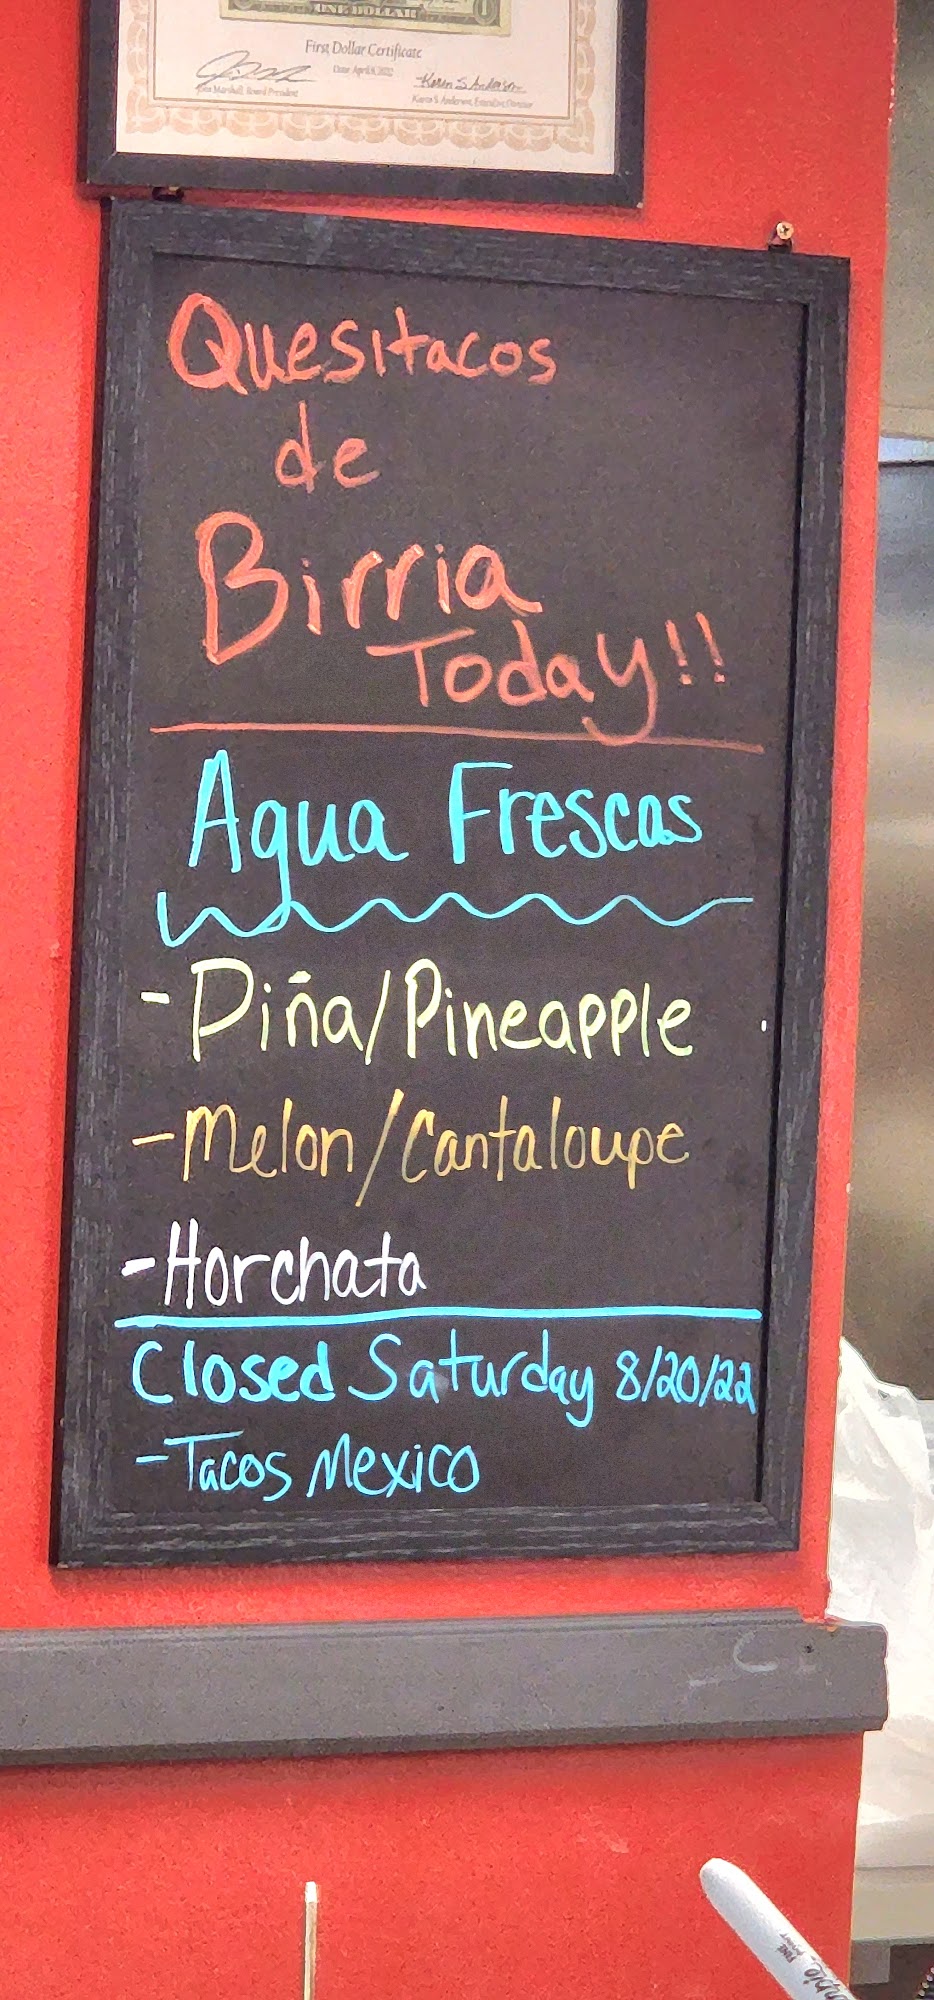 ONE DOLLAR
First Dollar Certificate
Date: April 8, 2022
Karen S Anderson
Marshall, Board President
Karen S Anderson, Executive Director
Quesitacos
de
Birria
Today!!
Agua Frescas
- Piña/Pineapple
- Melon/Cantaloupe
- Horchata
Closed Saturday 8/20/22
- Tacos Mexico
FINE
POINT